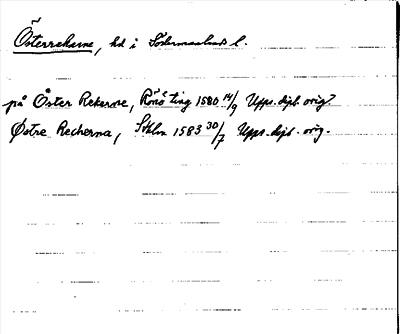 Österrekarne, hd i Södermanlands l.
på Öster Rekarne, Rönö ting 1580 14/9 Upps. dipl. orig?
Østre Recherna, Sthlm 1583 30/7 Upps. dipl. orig.